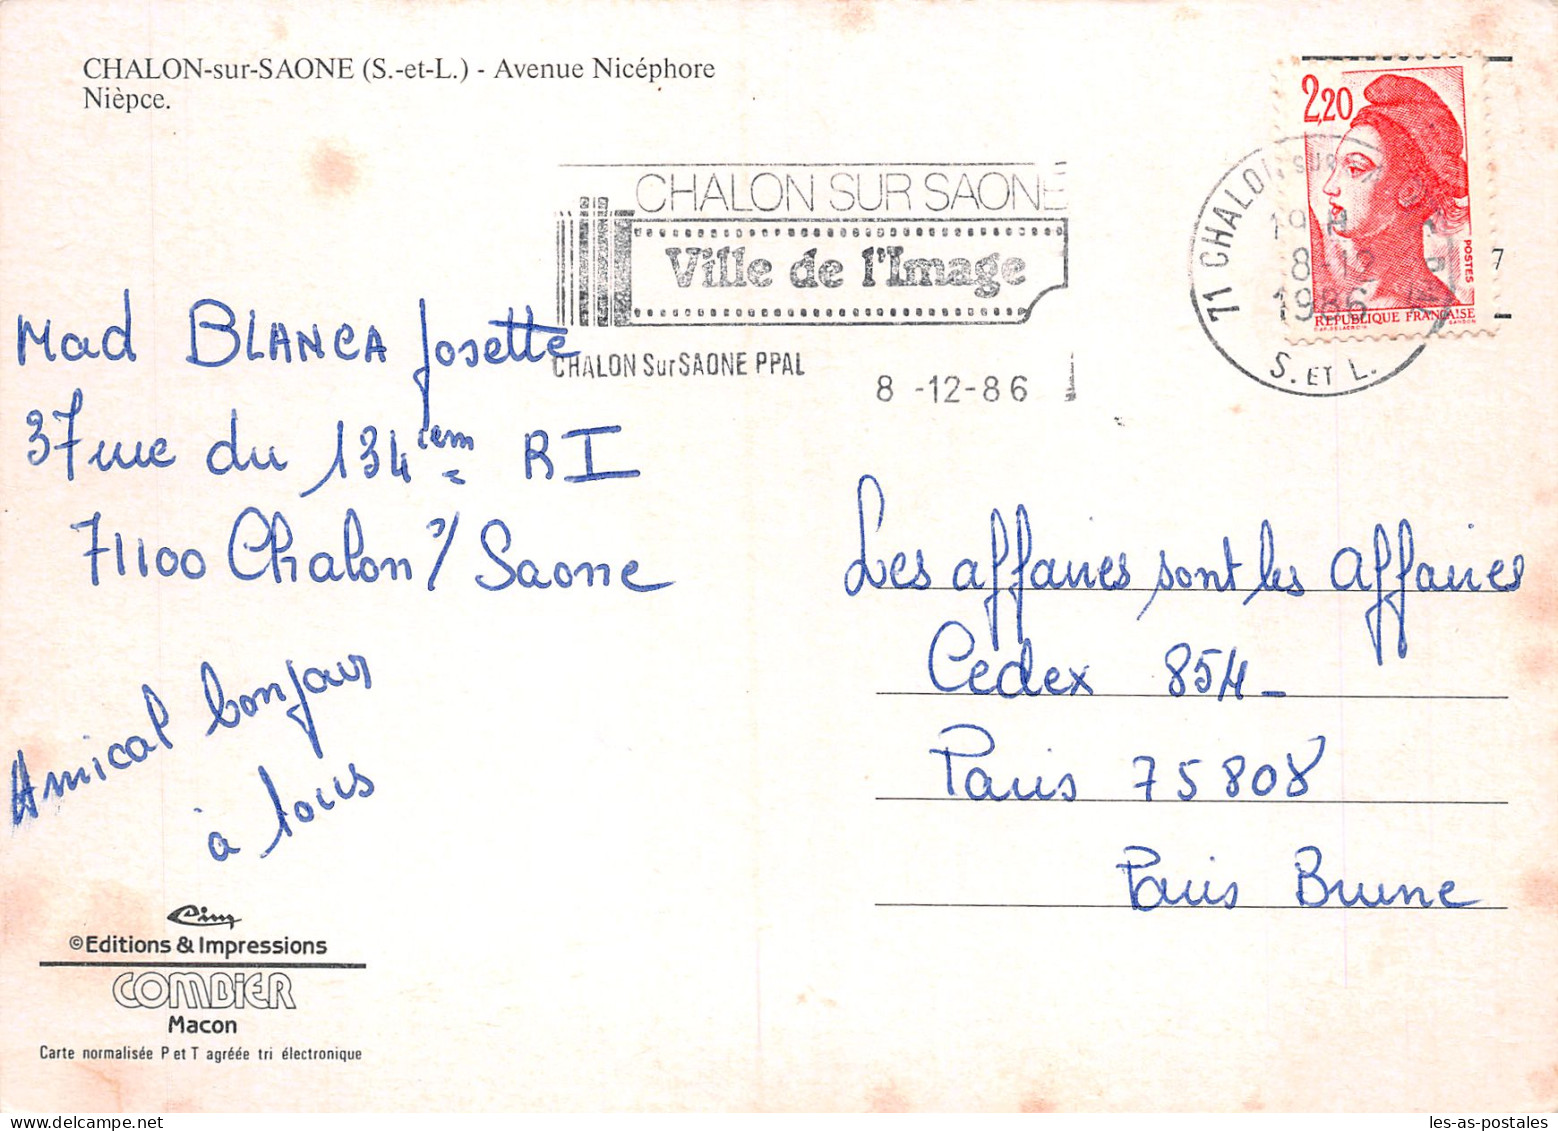 CHALON-sur-SAONE (S.-et-L.) - Avenue Nicéphore
Nièpce.
CHALON SUR SAONE
Ville de l'Image
CHALON Sur SAONE PPAL
8 -12-86
71 CHALON SUR
19 H
8-12
1986
S. ET L.
2,20
POSTES
REPUBLIQUE FRANÇAISE
7
Mad BLANCA Josette
37 rue du 134 iem RI
71100 Chalon s/ Saone
Amical bonjour
à tous
Les affaires sont les affaires
Cedex 854-
Paris 75808
Paris Brune
Cim
©Editions & Impressions
COMBIER
Macon
Carte normalisée P et T agréée tri électronique
les-as-postales